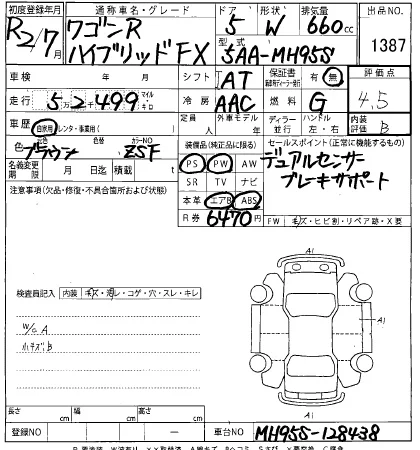 初度登録年月 通称車名・グレード ドア 形状 排気量 出品NO
R2/7月 ワゴンR ハイブリッド FX 5 W 660cc 1387
型式 5AA-MH95S
車検 年 月 シフト AT 保証書 有・無 評価点
走行 52,499 マイル キロ 冷房 AAC 燃料 G 4.5
車歴 自家用・レンタ・事業用( ) 定員 人 外車モデル 年 ディーラー 並行 ハンドル 左・右 内装評価 B
色 ブラウン 色替 カラーNO ZSF 装備品(純正品に限る) セールスポイント(正常に機能するもの)
名義変更期限 月 日迄 積載 t PS PW AW デュアルセンサー
注意事項(欠品・修復・不具合箇所および状態) SR TV ナビ ブレーキサポート
本革 エアB ABS
R券 6470円 FW キズ・ヒビ割・リペア跡・X要
A1
検査員記入 内装 キズ・汚レ・コゲ・穴・スレ・キレ
W/G A
ハナズレB
A1 A1
A1
長さ cm 幅 cm 高さ cm
登録NO ー 車台NO MH95S-128438